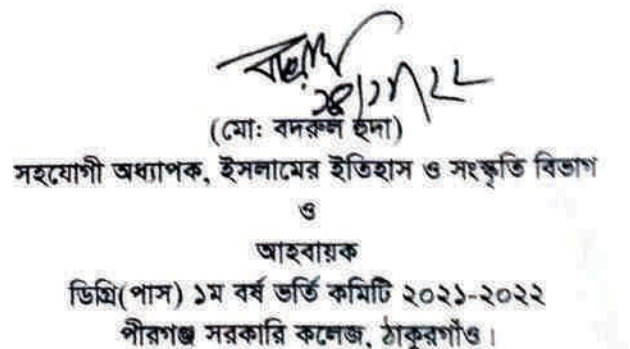 (মো: বদরুল হুদা)
সহযোগী অধ্যাপক, ইসলামের ইতিহাস ও সংস্কৃতি বিভাগ
ও
আহবায়ক
ডিগ্রি(পাস) ১ম বর্ষ ভর্তি কমিটি ২০২১-২০২২
পীরগঞ্জ সরকারি কলেজ, ঠাকুরগাঁও।